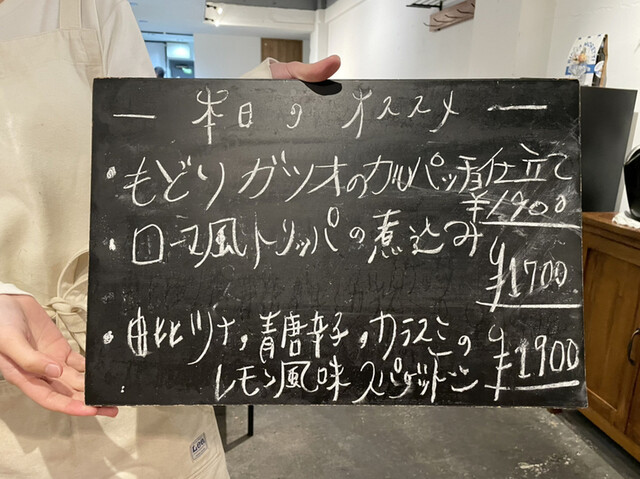 — 本日のオススメ —
・もどりガツオのカルパッチョ仕立て
¥1,900
・ローマ風トリッパの煮込み
¥1700
・由比ツナ,青唐辛子,カラスミの
レモン風味スパゲットーニ ¥1900
Lee